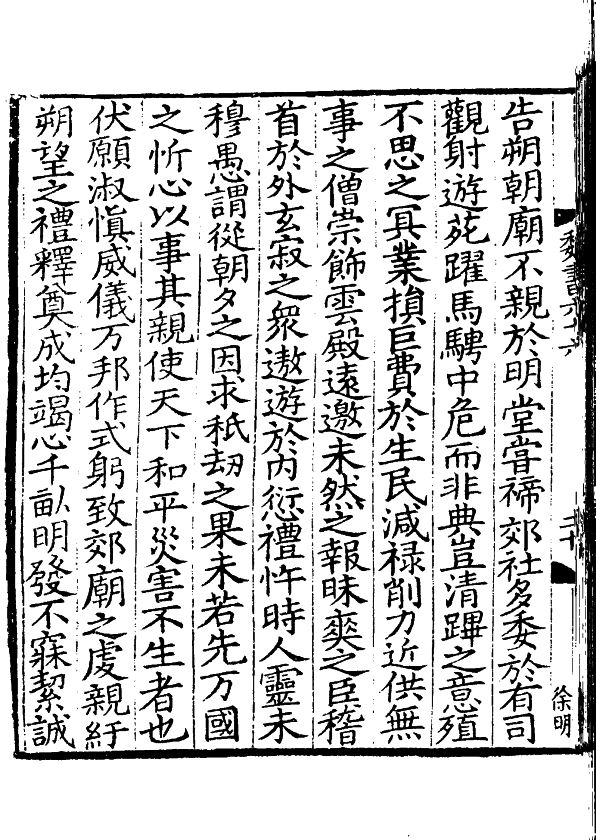 告朔朝廟不親於明堂嘗禘郊社多委於有司
觀射遊苑躍馬騁中危而非典豈清蹕之意殖
不思之冥業損巨費於生民減禄削力近供無
事之僧崇飾雲殿遠邀未然之報昧爽之臣稽
首於外玄寂之衆遨遊於内愆禮忤時人靈未
穆愚謂從朝夕之因求秖劫之果未若先万國
之忻心以事其親使天下和平災害不生者也
伏願淑慎威儀万邦作式躬致郊廟之虔親紆
朔望之禮釋奠成均竭心千畝明發不寐絜誠
魏書六十六
徐明